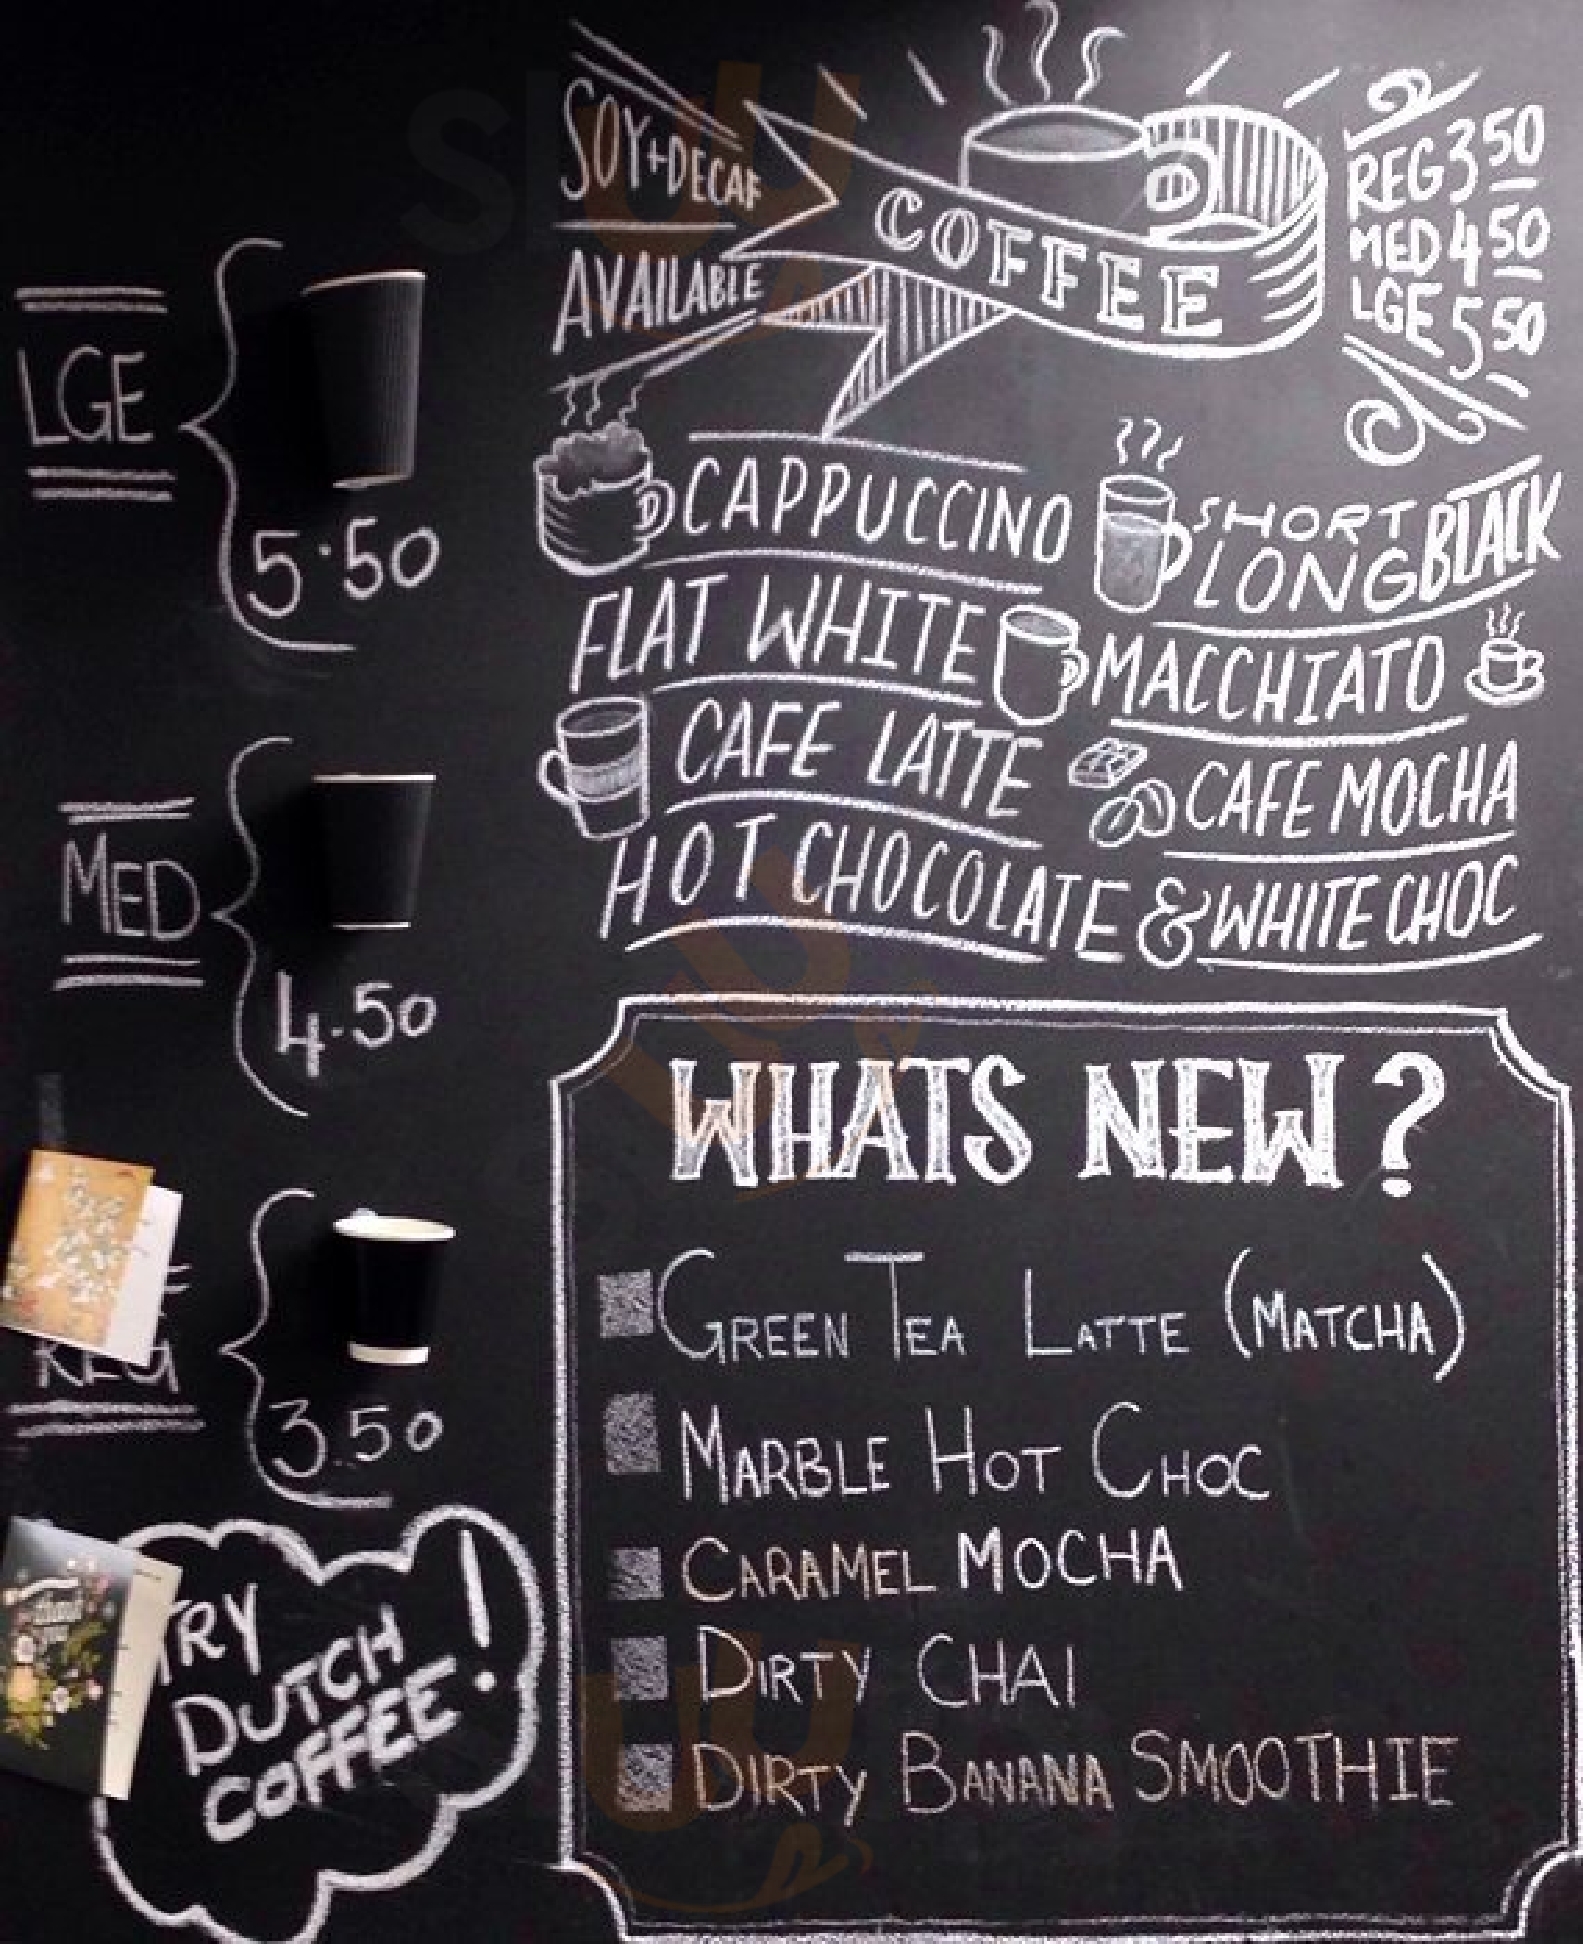 SOY+DECAF
AVAILABLE
COFFEE
REG 3 50
MED 4 50
LGE 5 50
LGE
5.50
CAPPUCCINO
SHORT
LONG BLACK
FLAT WHITE
MACCHIATO
CAFE LATTE
CAFE MOCHA
HOT CHOCOLATE & WHITE CHOC
MED
4.50
WHATS NEW?
REG
3.50
GREEN TEA LATTE (MATCHA)
MARBLE HOT CHOC
CARAMEL MOCHA
DIRTY CHAI
DIRTY BANANA SMOOTHIE
TRY
DUTCH
COFFEE!